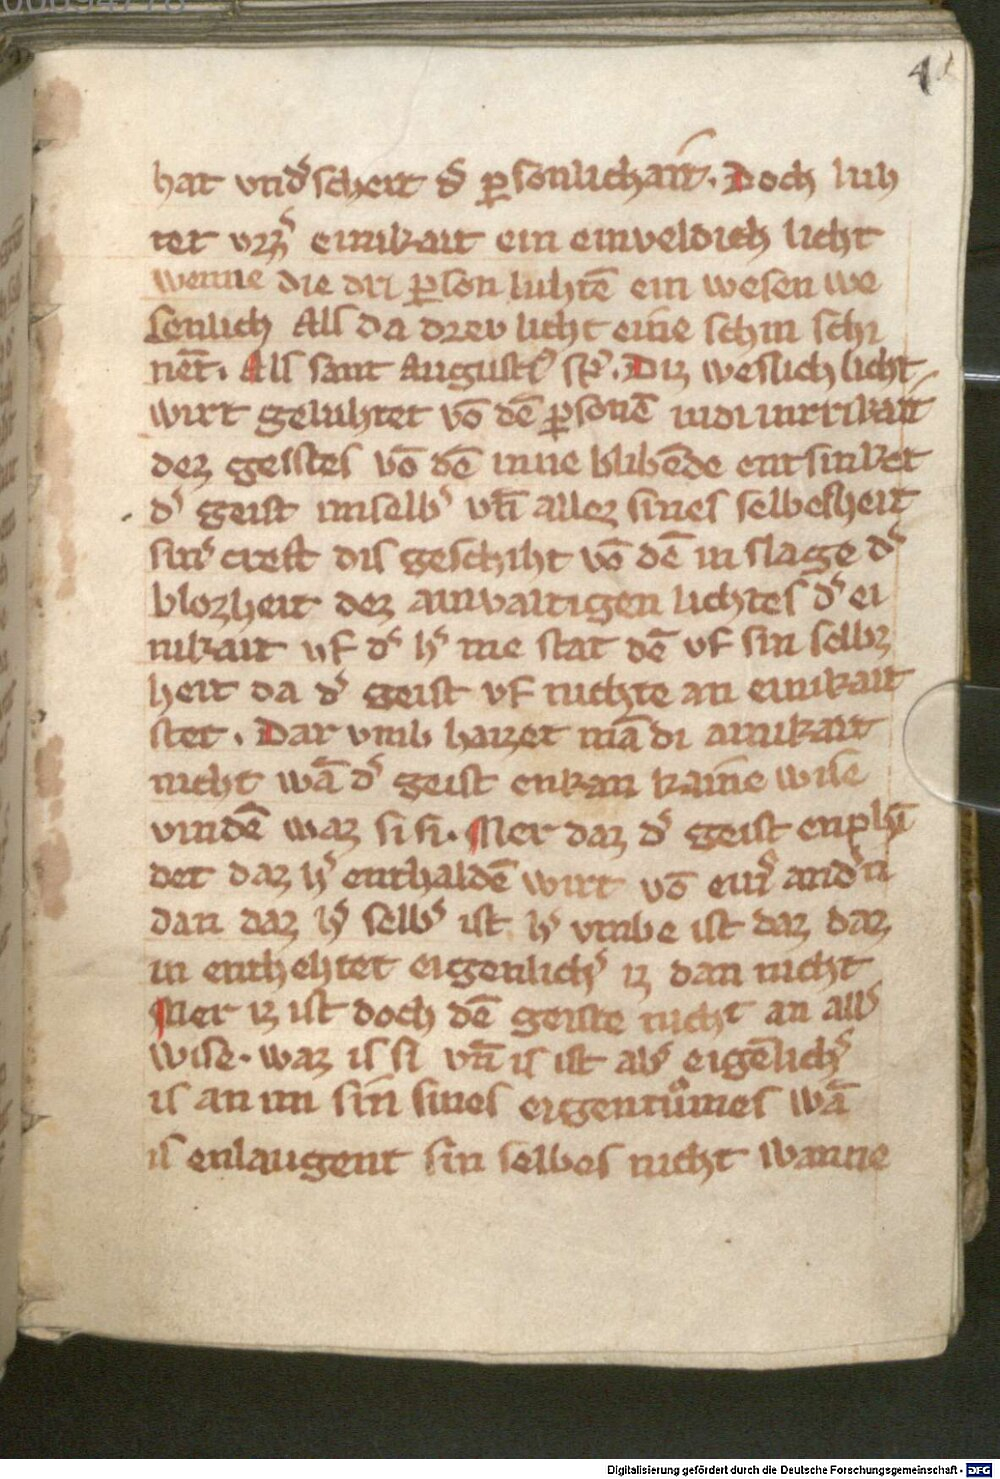 41
hat vndˢscheit dˢ ꝑsonlichait. Doch luh
tet vzˢ einikait ein einveldich licht
wenne die dri ꝑson luhtē ein wesen we
senlich Als da drev licht eine schin schi
nēt. Als sant Augustˢ spˢ. Diz weslich licht
wirt geluhtet vō dē ꝑsonē in di inrrikait
dez geistes vō dē inne blibēde entsinket
dˢ geist im selbˢ vn̄ allez sines selbesheit
sinˢ creft dis geschiht vō dē in slage dˢ
blozheit dez ainvaltigen lichtes dˢ ei
nikait vf dˢ hˢ me stat dē vf sin selbz
heit da dˢ geist vf nichte an einikait
stet. Dar vmb haizet mā di ainikait
nicht wā dˢ geist enkan kaine wise
vindē waz si si. Mer daz dˢ geist enphī
det daz hˢ enthaldē wirt vō einˢ andˢn
dan daz hˢ selbˢ ist hˢ vmbe ist daz daz
in entheltet eigenlichˢ iz dan nicht
Mer iz ist doch dē geiste nicht an allˢ
wise. waz is si vn̄ is ist abˢ eigēlichˢ
is an im sin sines eigentůmes wā
is enlaugent sin selbes nicht wanne
Digitalisierung gefördert durch die Deutsche Forschungsgemeinschaft - DFG